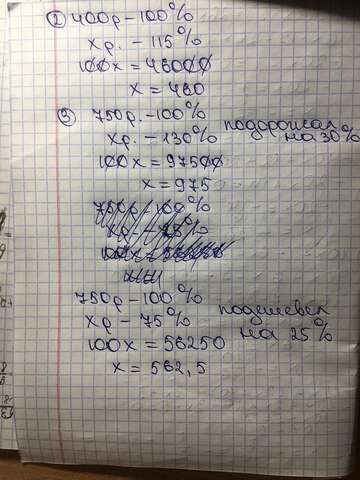 ② 400р - 100%
хр. - 115%
100х = 46000
х = 460
③ 750р. - 100%
подорожал
хр. - 130%
на 30%
100х = 97500
х = 975
750р - 100%
хр - 75%
подешевел
на 25%
100х = 56250
х = 562,5